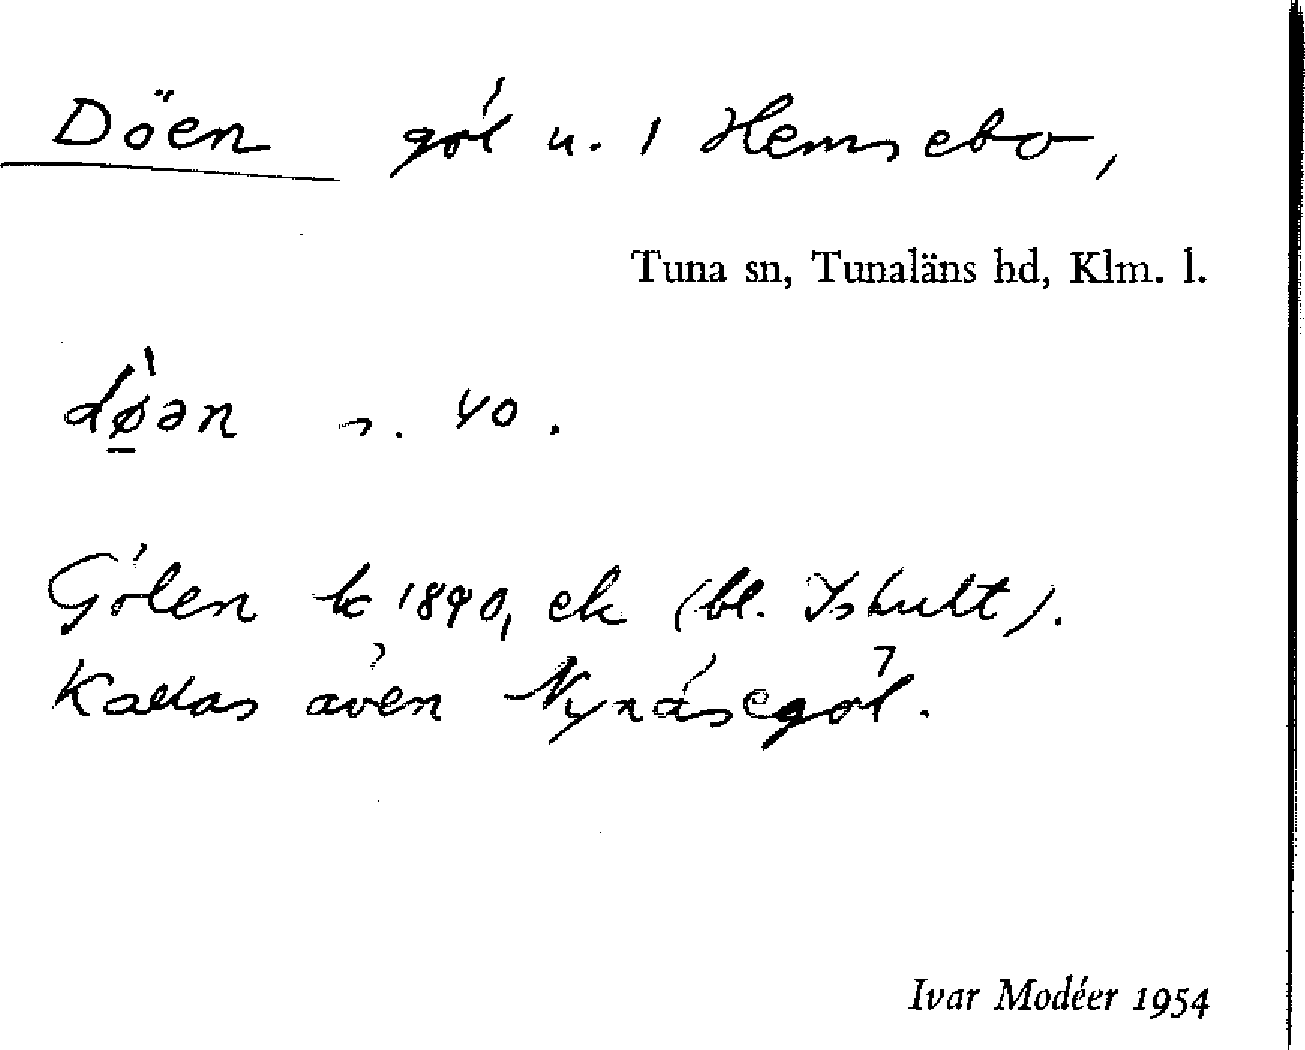 Döen göl u. 1 Hemsebo,
Tuna sn, Tunaläns hd, Klm. l.
dø̱̀ən s. 40.
Gölen k 1890, ek (bl. Ishult).
Kallas även Nynäsegöl.
Ivar Modéer 1954